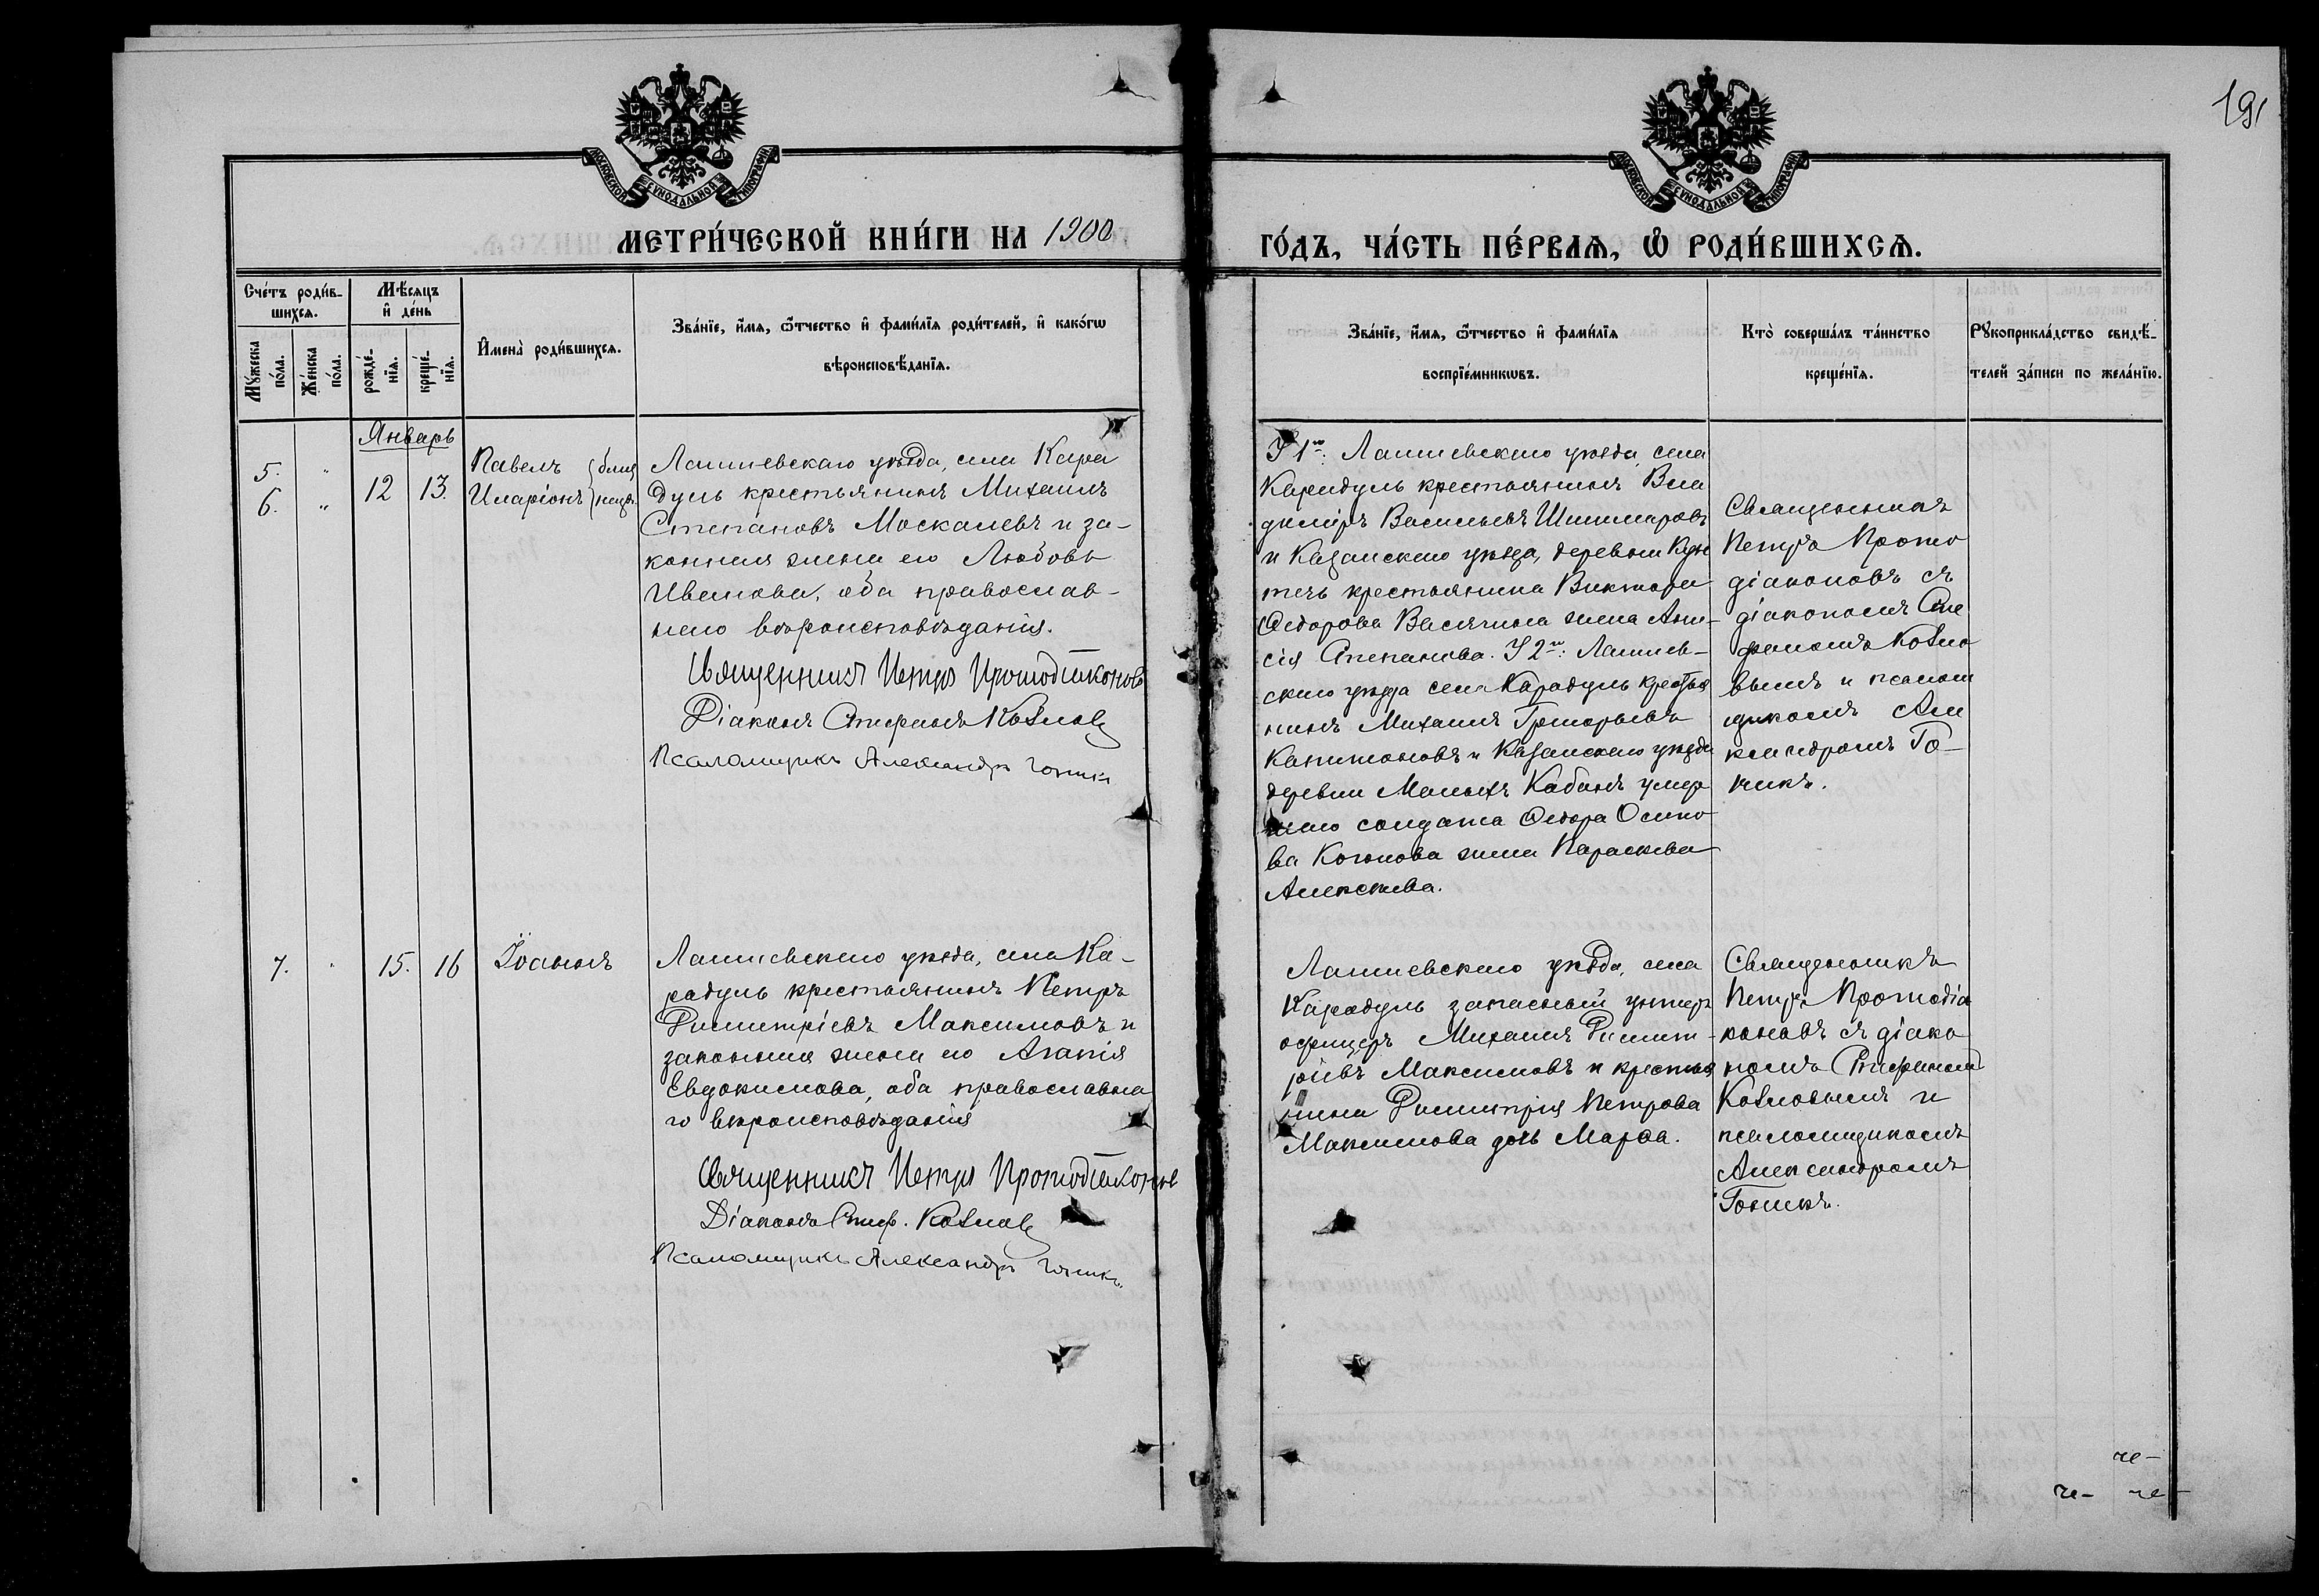 191
МОСКОВСКОЙ СУНОДАЛЬНОЙ ТИПОГРАФІИ
МОСКОВСКОЙ СУНОДАЛЬНОЙ ТИПОГРАФІИ
МЕТРИ́ЧЕСКОЙ КНИ́ГИ НА 1900
ГО́ДЪ, ЧА́СТЬ ПЕ́РВАѦ, Ѡ҆ РОДИ́ВШИХСѦ.
Сче́тъ роди́в-
шихсѧ.
Мꙋ́жеска
по́ла.
Же́нска
по́ла.
Мѣ́сѧцъ
и҆ де́нь
рожде́-
нїѧ.
креще́-
нїѧ.
И҆мена̀ роди́вшихсѧ.
Зва́нїе, и҆́мѧ, ѻ҆́тчество и҆ фами́лїѧ роди́телей, и҆ како́гѡ
вѣроисповѣ́данїѧ.
Зва́нїе, и҆́мѧ, ѻ҆́тчество и҆ фами́лїѧ
воспрїе́мникѡвъ.
Кто̀ соверша́лъ та́инство
креще́нїѧ.
Рꙋкоприкла́дство свидѣ́-
телей за́писи по жела́нїю.
Январь
5. "
6. "
12 13.
Павелъ (близ
Иларіонъ (нецы
Лаишевскаго уѣзда, села Кара
дуль крестьянинъ Михаилъ
Степановъ Москалевъ и за-
конная жена его Любовь
Иванова, оба православ-
наго вѣроисповѣданія.
Священникъ Петръ Протодіаконовъ
Діаконъ Стефанъ Козловъ
Псаломщикъ Александръ Гоникъ
У 1го: Лаишевскаго уѣзда, села
Карадуль крестьянинъ Вла
диміръ Васильевъ
и Казанскаго уѣзда, деревни
крестьянина Виктора
Ѳедорова Васячина жена Ани-
сія Степанова. У 2го: Лаишев-
скаго уѣзда села Карадуль крестья
нинъ Михаилъ Григорьевъ
Капитоновъ и Казанскаго уѣзда
деревни Малыхъ Кабанъ умер
шаго солдата Ѳедора Осипо
ва жена Параскева
Алексѣева.
Священникъ
Петръ Прото
діаконовъ съ
діакономъ Сте
фаномъ Козло
вымъ и псалом
щикомъ Але
ксандромъ Го-
никъ.
7. " 15. 16 Іоаннъ
Лаишевскаго уѣзда, села Ка-
радуль крестьянинъ Петръ
Димитріевъ Максимовъ и
законная жена его Агапія
Евдокимова, оба православна
го вѣроисповѣданія
Священникъ Петръ Протодіаконовъ
Діаконъ Стеф. Козловъ
Псаломщикъ Александръ Гоникъ.
Лаишевскаго уѣзда, села
Карадуль запасный унтеръ
офицеръ Михаилъ Димит-
ріевъ Максимовъ и крестья
нина Димитрія Петрова
Максимова дочь Марѳа.
Священникъ
Петръ Протодіа
коновъ съ діако
номъ Стефаномъ
Козловымъ и
псаломщикомъ
Александромъ
Гоникъ.
че-
че- че-